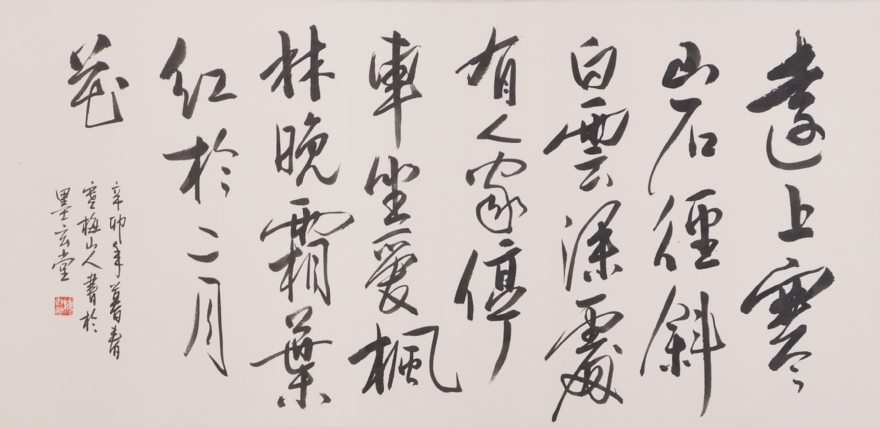 遠上寒
山石徑斜
白雲深處
有人家停
車坐愛楓
林晚霜葉
紅於二月
花
辛卯年暮春
山人書於
墨云堂